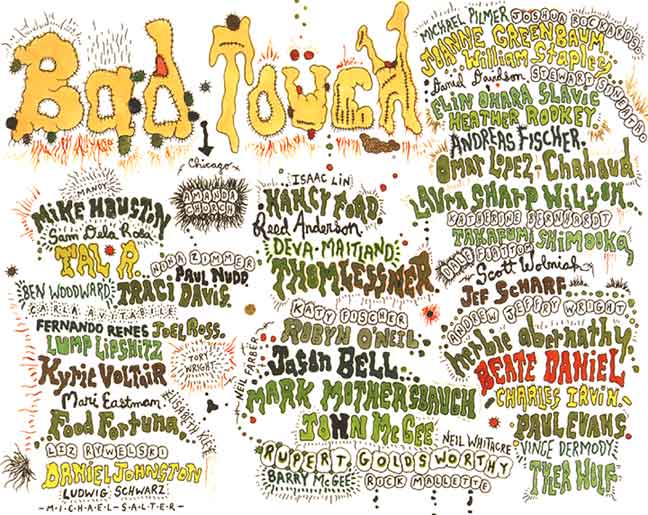 Bad Touch
Chicago
MANDY
AMANDA CHURCH
MIKE HOUSTON
Sam Dela Rosa
TAL R.
ADHA ZIMMER
PAUL NUDD.
BEN WOODWARD
TRACI DAVIS.
FERNANDO RENES
JOEL ROSS.
LUMP LIPSHITZ
TORY WRIGHT
KYRIE VOLTAIR
Mari Eastman
Food Fortuna.
ELISABETH KLEY
LIZ RYWELSKI
DANIEL JOHNSTON
LUDWIG SCHWARZ
-MICHAEL-SALTER-
ISAAC LIN
NANCY FORD.
Reed Anderson.
DEVA-MAITLAND
THOM LESSNER
KATY FISCHER
ROBYN O'NEIL
NEIL FARBER
JASON BELL...
MARK MOTHERSBAUGH
JOHN McGEE
NEIL WHITACRE
RUPERT GOLDSWORTHY
BARRY McGEE
RICK MALLETTE
MICHAEL PILMER
JOSHUA RICKARDS
JOANNE GREENBAUM
William Stapley
Daniel Davidson
ELIN OHARA SLAVIC
HEATHER RODKEY.
ANDREAS FISCHER.
OMAR LOPEZ-Chahoud
LAURA SHARP WILSON.
KATHERINE BERNHARDT
TAKAFUMI SHIMOOKA
Scott Wolniak
JEF SCHARF
ANDREW JEFFRY WRIGHT
herlie abernathy.
BEATE DANIEL
CHARLES IRVIN.
PAUL EVANS.
VINCE DERMODY
THEA WOLF